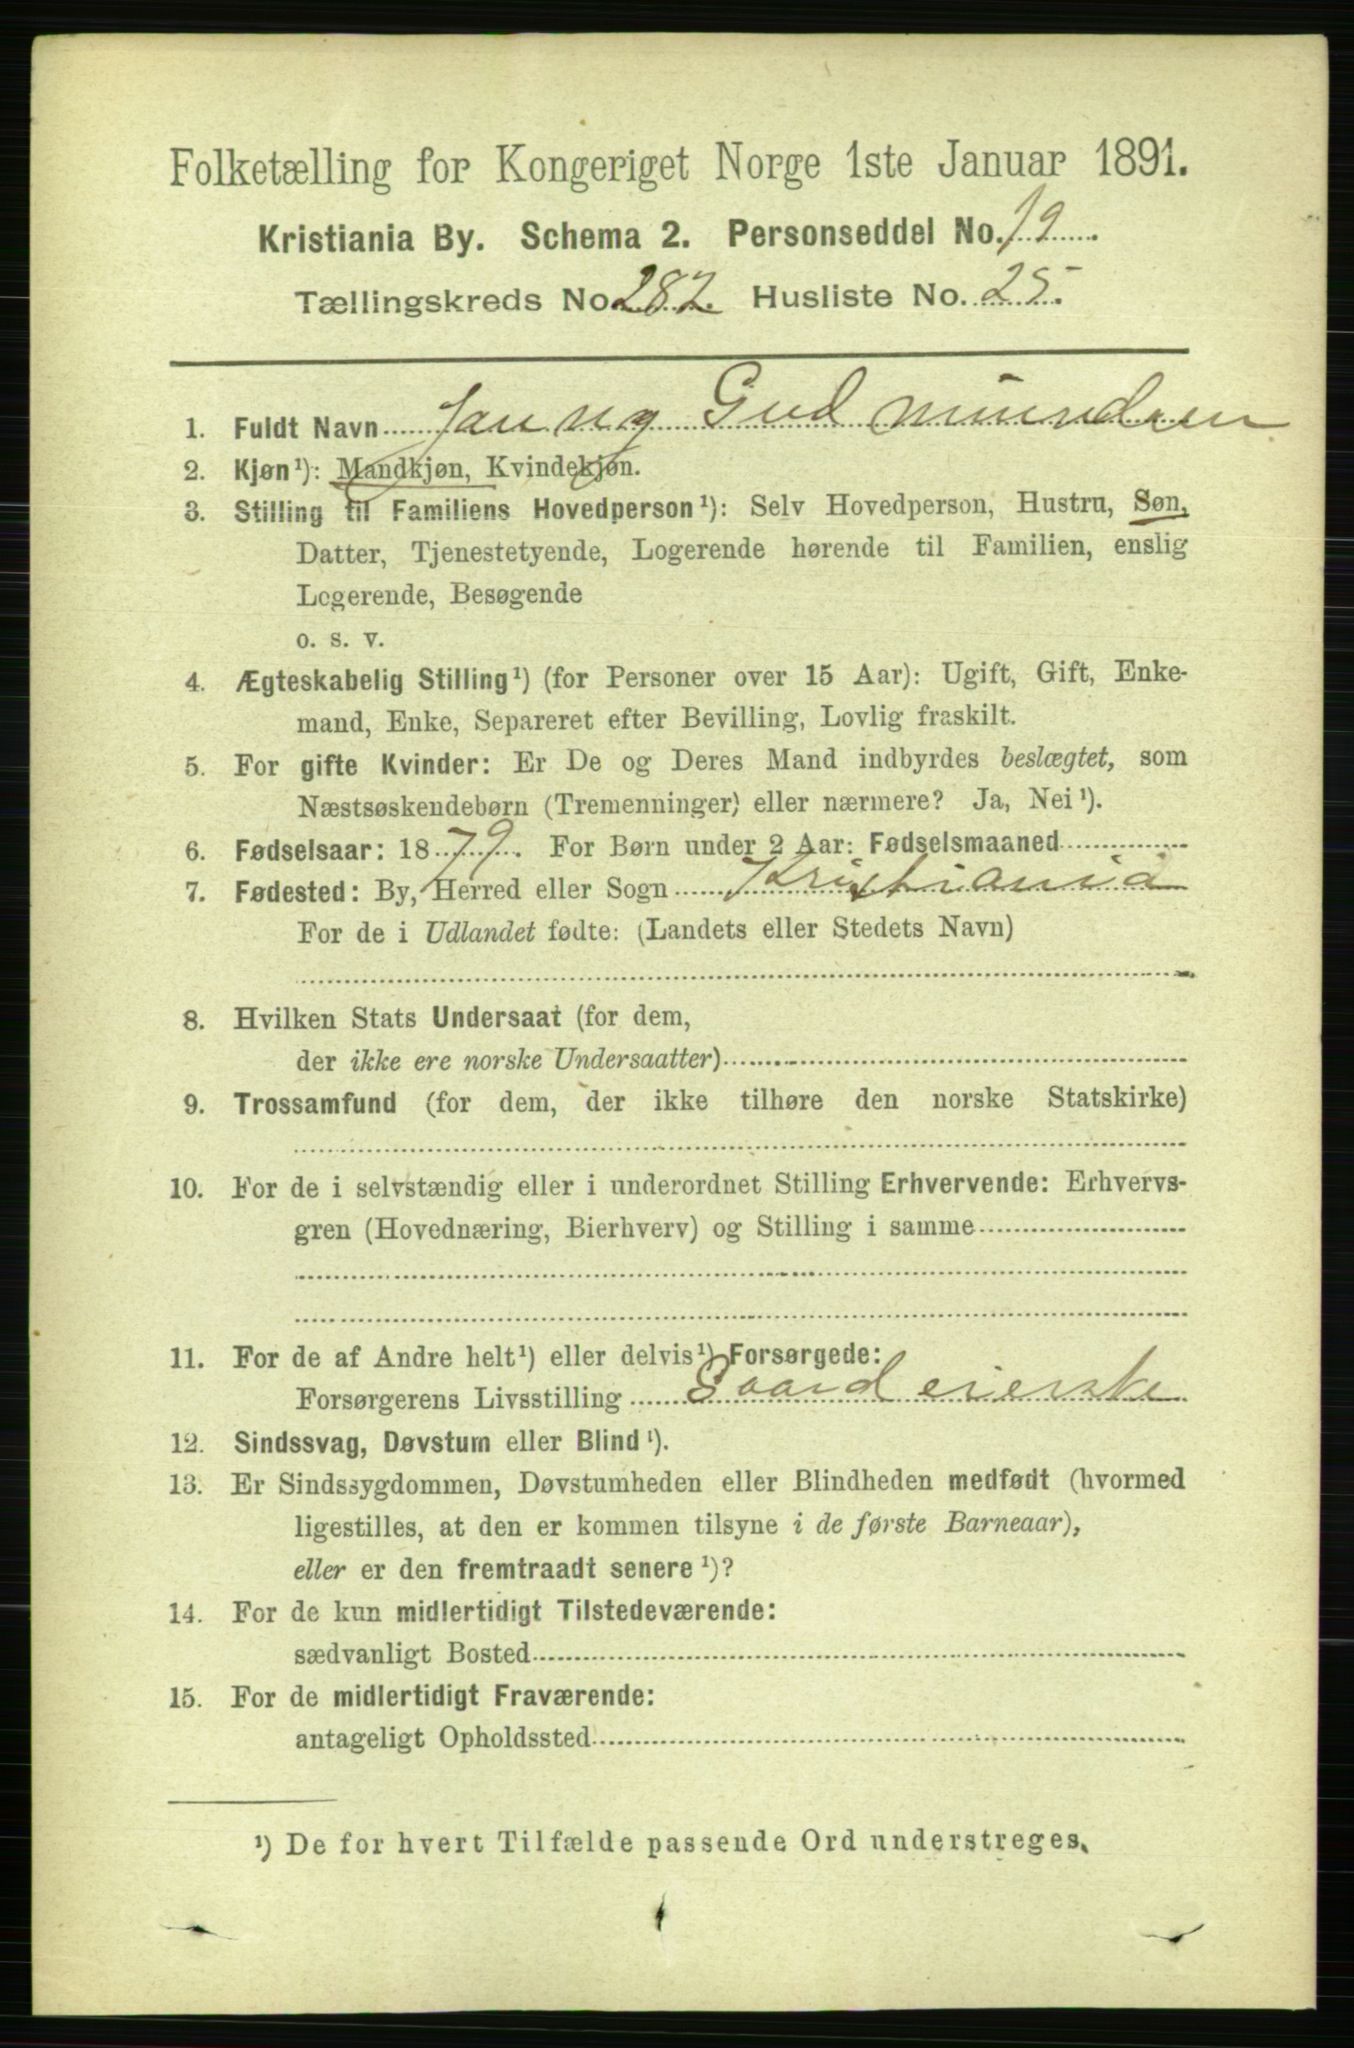 Folketælling for Kongeriget Norge 1ste Januar 1891.
Kristiania By. Schema 2. Personseddel No. 19
Tællingskreds No 282. Husliste No. 25.
1. Fuldt Navn Gudmundsen
2. Kjøn¹): Mandkjøn, Kvindekjøn.
3. Stilling til Familiens Hovedperson¹): Selv Hovedperson, Hustru, Søn,
Datter, Tjenestetyende, Logerende hørende til Familien, enslig
Logerende, Besøgende
o. s. v.
4. Ægteskabelig Stilling¹) (for Personer over 15 Aar): Ugift, Gift, Enke-
mand, Enke, Separeret efter Bevilling, Lovlig fraskilt.
5. For gifte Kvinder: Er De og Deres Mand indbyrdes beslægtet, som
Næstsøskendebørn (Tremenninger) eller nærmere? Ja, Nei¹).
6. Fødselsaar: 1879. For Børn under 2 Aar: Fødselsmaaned
7. Fødested: By, Herred eller Sogn Kristiania
For de i Udlandet fødte: (Landets eller Stedets Navn)
8. Hvilken Stats Undersaat (for dem,
der ikke ere norske Undersaatter)
9. Trossamfund (for dem, der ikke tilhøre den norske Statskirke)
10. For de i selvstændig eller i underordnet Stilling Erhvervende: Erhvervs-
gren (Hovednæring, Bierhverv) og Stilling i samme
11. For de af Andre helt¹) eller delvis¹) Forsørgede:
Forsørgerens Livsstilling Gaardeierske
12. Sindssvag, Døvstum eller Blind¹).
13. Er Sindssygdommen, Døvstumheden eller Blindheden medfødt (hvormed
ligestilles, at den er kommen tilsyne i de første Barneaar),
eller er den fremtraadt senere¹)?
14. For de kun midlertidigt Tilstedeværende:
sædvanligt Bosted
15. For de midlertidigt Fraværende:
antageligt Opholdssted
¹) De for hvert Tilfælde passende Ord understreges.